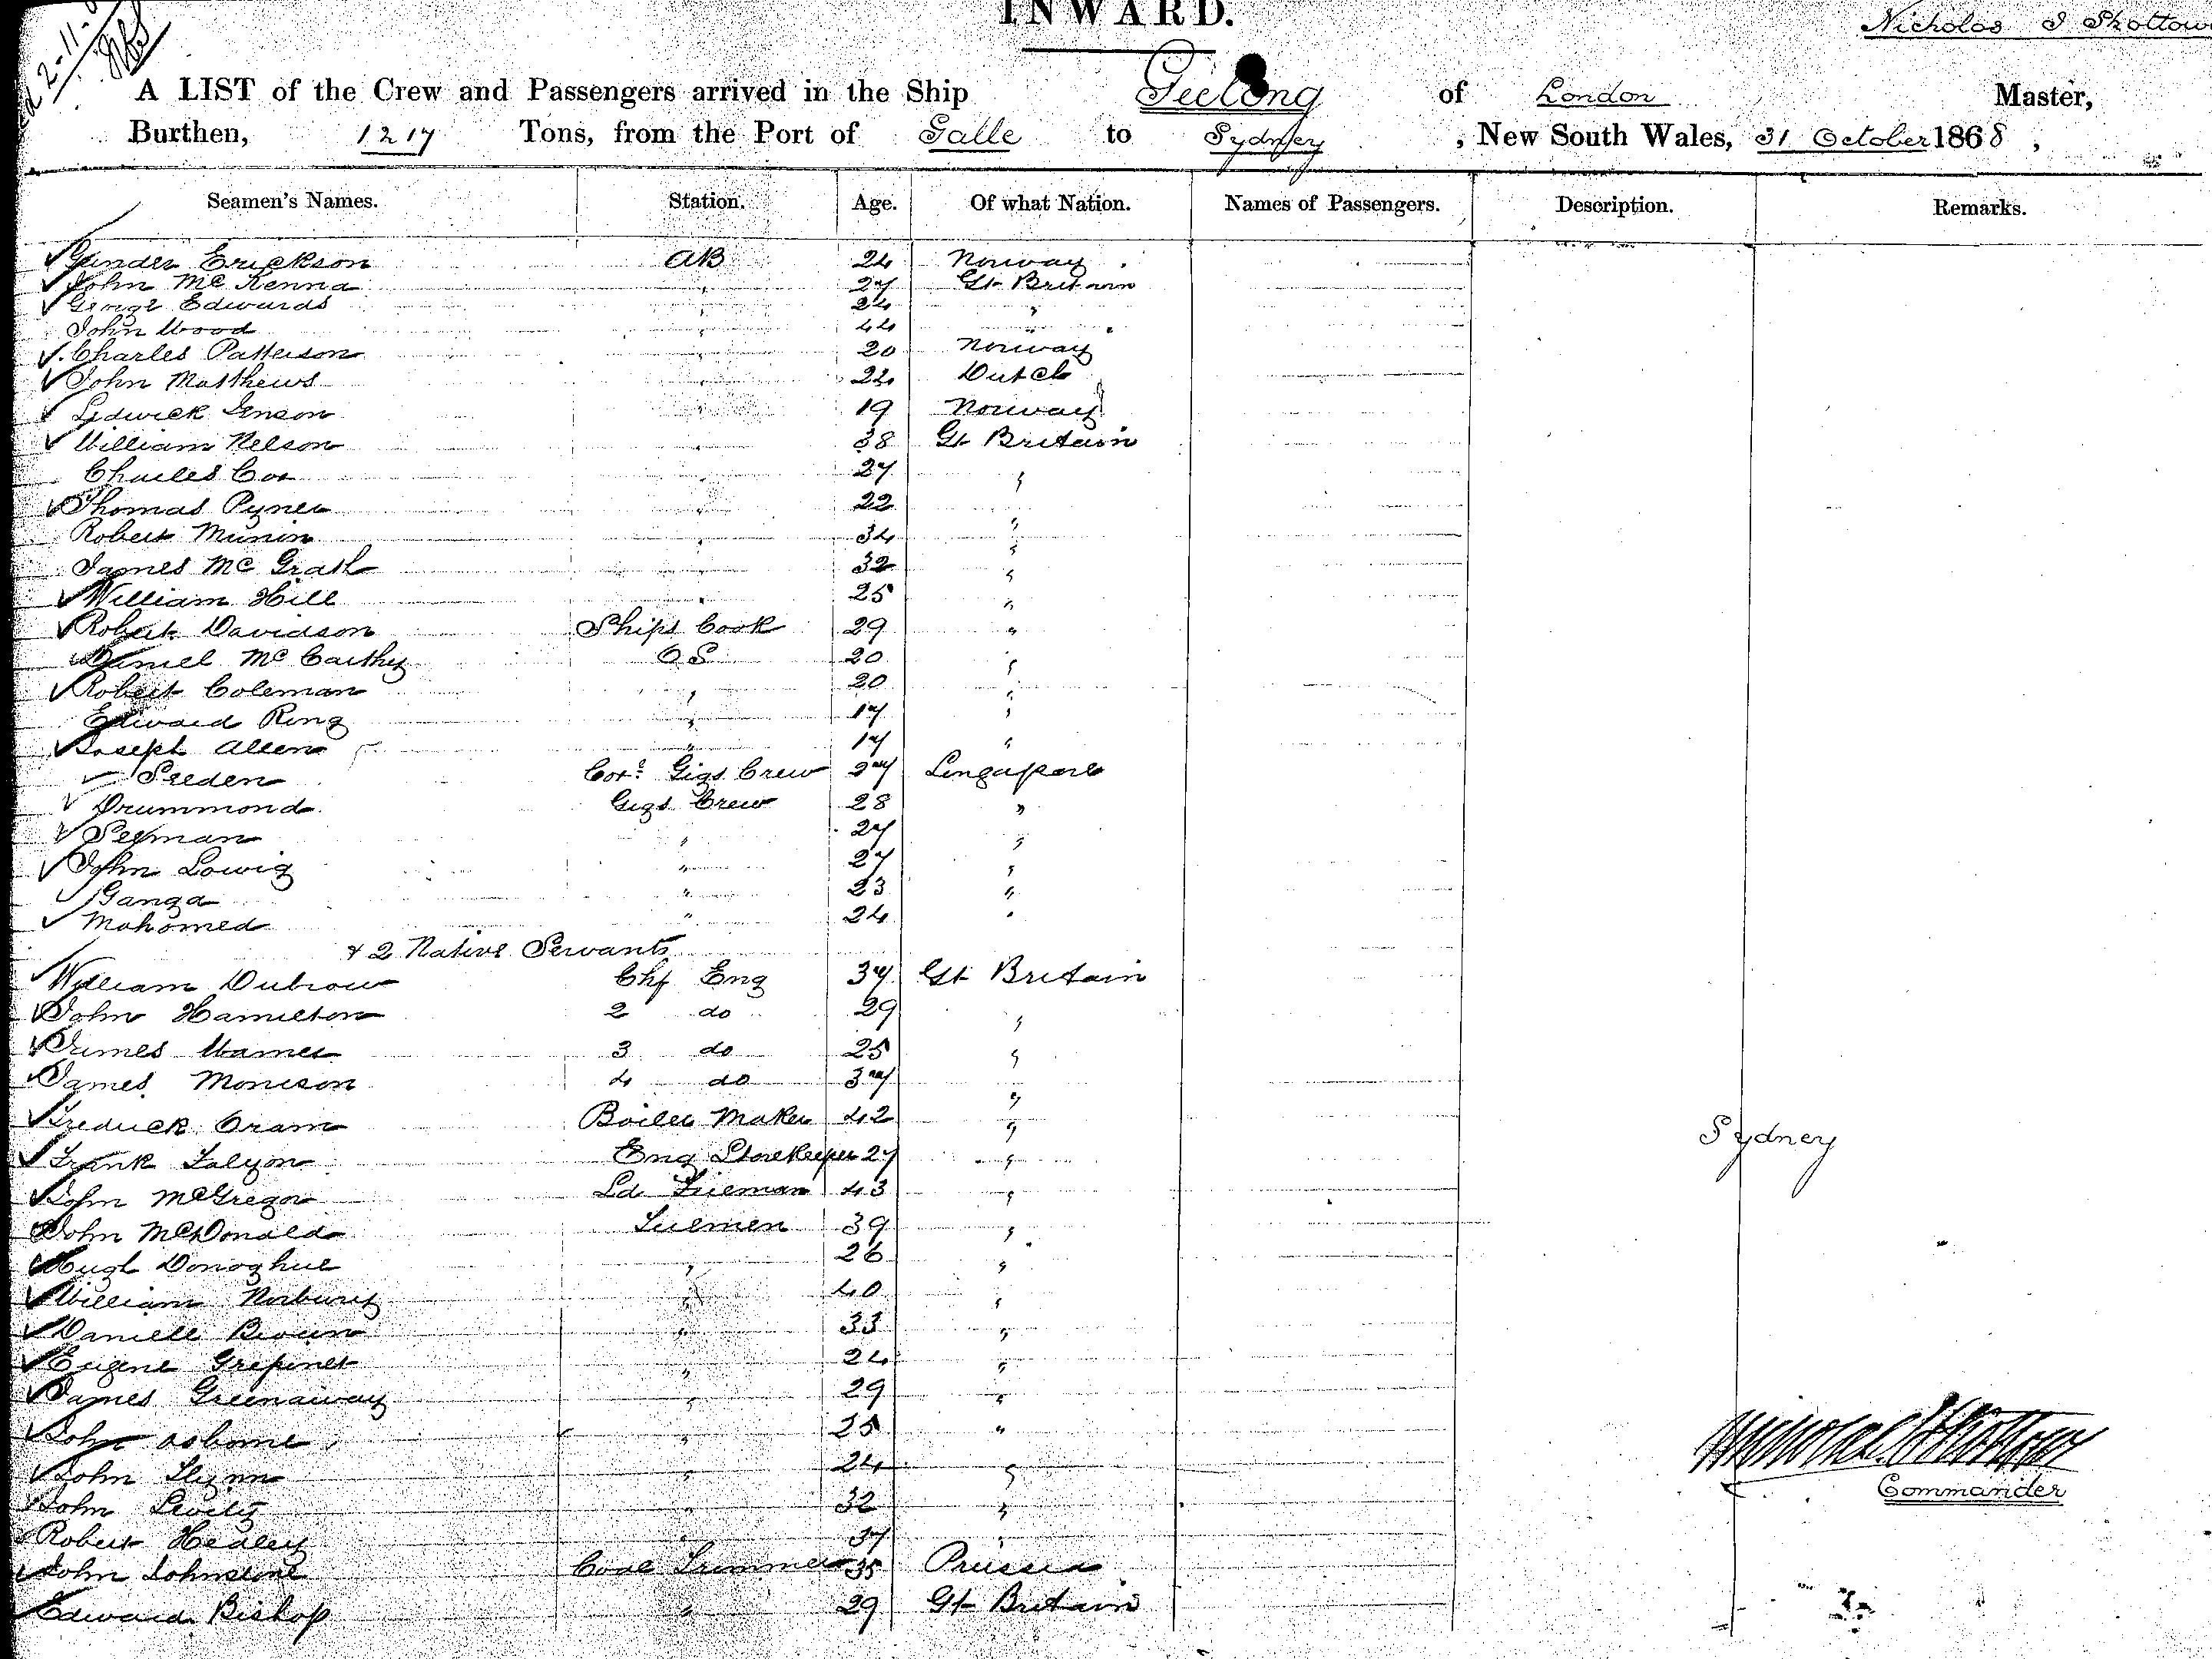 INWARD.
Nicholas I Skottowe
A LIST of the Crew and Passengers arrived in the Ship Geelong of London Master,
Burthen, 1217 Tons, from the Port of Galle to Sydney, New South Wales, 31 October 1868,
Seamen's Names. Station. Age. Of what Nation. Names of Passengers. Description. Remarks.
Gunder Erickson AB 24 Norway
John McKenna " 27 Gt Britain
George Edwards " 24 "
John Wood " 44 "
Charles Patterson " 20 Norway
John Matthews " 24 Dutch
Ledwick Jenson " 19 Norway
William Nelson " 38 Gt Britain
Charles Cox " 27 "
Thomas Pyner " 22 "
Robert Munin " 34 "
James McGrath " 32 "
William Hill " 25 "
Robert Davidson Ships Cook 29 "
Daniel McCarthy OS 20 "
Robert Coleman " 20 "
Edward Ring " 17 "
Joseph Allen " 17 "
Seeden Coxs Gigs Crew 27 Singapore
Drummond Gigs Crew 28 "
Seeman " 27 "
John Lowig " 27 "
Ganga " 23 "
Mahomed " 24 "
& 2 Native Servants
William Dubrow Chf Eng 37 Gt Britain
John Hamilton 2 do 29 "
James Warner 3 do 25 "
James Morrison 4 do 37 "
Fredrick Oram Boiler Maker 42 "
Sydney
Frank Falyon Eng Storekeeper 27 "
John McGregor Ld Fireman 43 "
John McDonald Firemen 39 "
Hugh Donoghue " 26 "
William Norbury " 40 "
Daniell Brown " 33 "
Eugene Grefinet " 24 "
James Greenaway " 29 "
John Osborne " 25 "
John Flynn " 24 "
Commander
John " 32 "
Robert Healey " 37 "
John Johnstone Coal Trimmer 35 Prussia
Edward Bishop " 29 Gt Britain